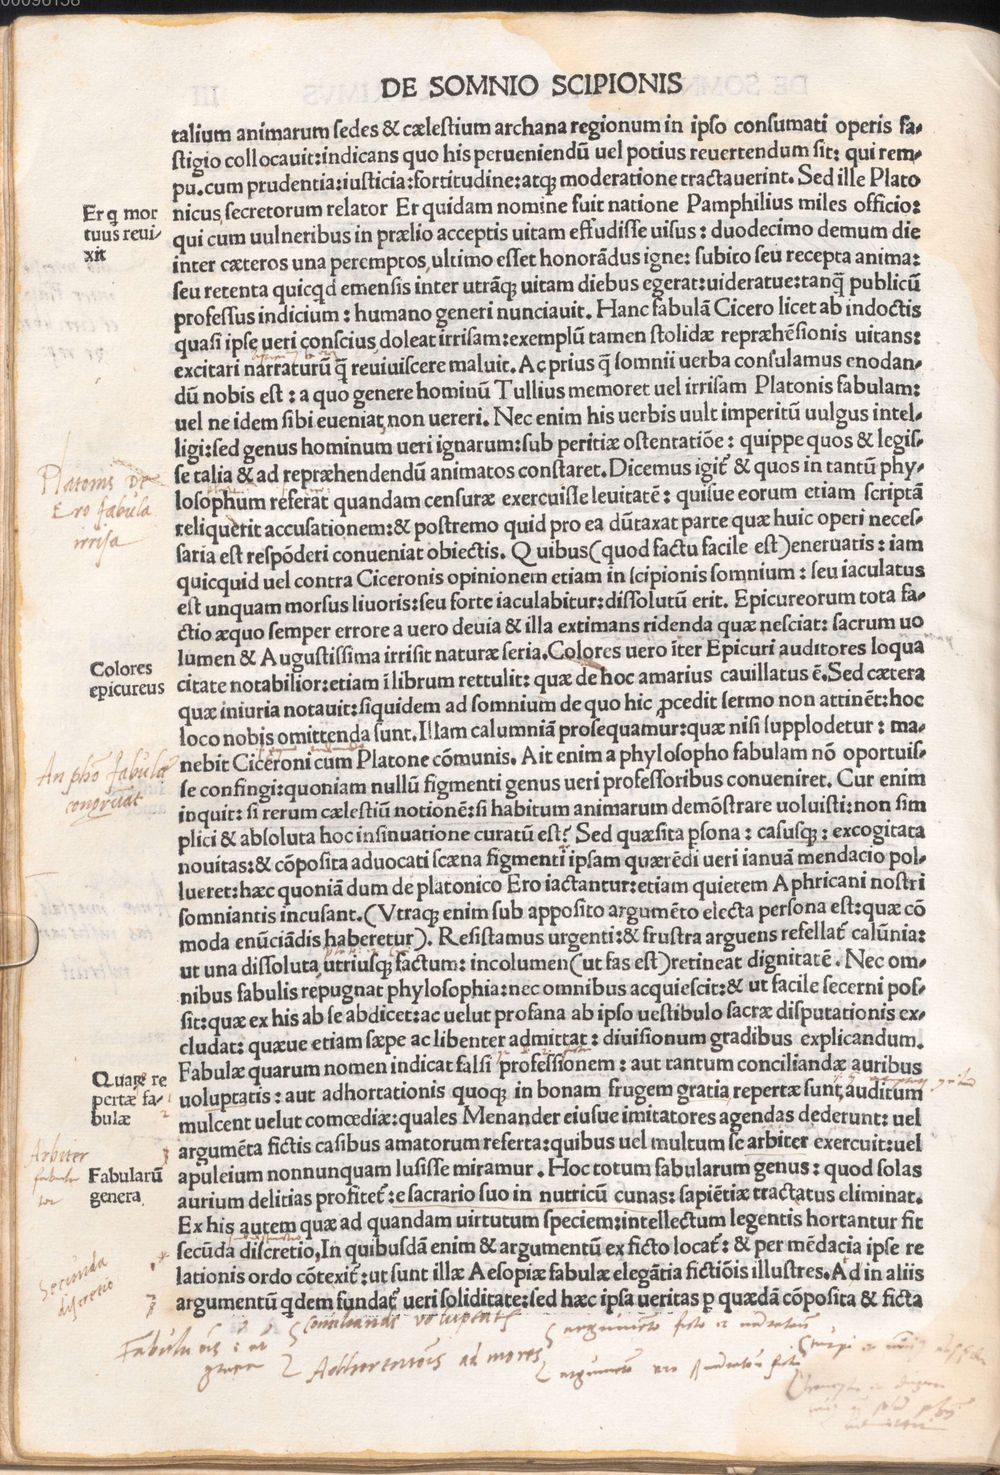 DE SOMNIO SCIPIONIS
talium animarum sedes & cælestium archana regionum in ipso consumati operis fa-
stigio collocauit:indicans quo his perueniendū uel potius reuertendum sit: qui rem-
pu.cum prudentia:iusticia:fortitudine:atq; moderatione tractauerint. Sed ille Plato
Er q mor
tuus reui-
xit
nicus secretorum relator Er quidam nomine fuit natione Pamphilius miles officio:
qui cum uulneribus in prælio acceptis uitam effudisse uisus : duodecimo demum die
inter cæteros una peremptos,ultimo esset honorādus igne: subito seu recepta anima:
seu retenta quicqd emensis inter utrāq; uitam diebus egerat:uideratue:tanq̄ publicū
professus indicium : humano generi nunciauit. Hanc fabulā Cicero licet ab indoctis
quasi ipse ueri conscius,doleat irrisam:exemplū tamen stolidæ repræhēsionis uitans:
excitari narraturū q̄ reuiuiscere maluit. Ac prius q̄ somnii uerba consulamus enodan-
dū nobis est : a quo genere hominū Tullius memoret uel irrisam Platonis fabulam:
uel ne idem sibi eueniat,non uereri. Nec enim his uerbis uult imperitū uulgus intel-
ligi:sed genus hominum ueri ignarum:sub peritiæ ostentatiōe : quippe quos & legis-
se talia & ad repræhendendū animatos constaret. Dicemus igit̃ & quos in tantū phy-
Platonis de
Ero fabula
irrisa
losophum referat quandam censuræ exercuisse leuitatē : quisue eorum etiam scriptā
reliquerit accusationem:& postremo quid pro ea dūtaxat parte quæ huic operi neces-
saria est respōderi conueniat obiectis. Quibus(quod factu facile est)eneruatis : iam
quicquid uel contra Ciceronis opinionem etiam in scipionis somnium : seu iaculatus
est unquam morsus liuoris:seu forte iaculabitur:dissolutū erit. Epicureorum tota fa-
ctio æquo semper errore a uero deuia & illa extimans ridenda quæ nesciat: sacrum uo
lumen & Augustissima irrisit naturæ seria.Colores uero īter Epicuri auditores loqua
Colores
epicureus
citate notabilior:etiam ī librum rettulit: quæ de hoc amarius cauillatus ē.Sed cætera
quæ iniuria notauit:siquidem ad somnium de quo hic ꝓcedit sermo non attinēt:hoc
loco nobis omittenda sunt. Illam calumniā prosequamur:quæ nisi supplodetur : ma-
nebit Ciceroni cum Platone cōmunis. Ait enim a phylosopho fabulam nō oportuis-
An phō fabulæ
congruāt
se confingi:quoniam nullū figmenti genus ueri professoribus conueniret. Cur enim
inquit: si rerum cælestiū notionē:si habitum animarum demōstrare uoluisti:non sim
plici & absoluta hoc insinuatione curatū est? Sed quæsita ꝑsona : casusq; : excogitata
nouitas:& cōposita aduocati scæna figmenti ipsam quærēdi ueri ianuā mendacio pol-
lueret:hæc quoniā dum de platonico Ero iactantur:etiam quietem Aphricani nostri
somniantis incusant.(Vtraq; enim sub apposito argumēto electa persona est:quæ cō
moda enūciādis haberetur). Resistamus urgenti:& frustra arguens refellat̃ calūnia:
ut una dissoluta utriusq; factum: incolumen(ut fas est)retineat dignitatē . Nec om-
nibus fabulis repugnat phylosophia:nec omnibus acquiescit:& ut facile secerni pos-
sit:quæ ex his ab se abdicet:ac uelut profana ab ipso uestibulo sacræ disputationis ex-
cludat: quæue etiam sæpe ac libenter admittat : diuisionum gradibus explicandum.
Fabulæ quarum nomen indicat falsi professionem : aut tantum conciliandæ auribus
Quare re
pertæ fa-
bulæ
uoluptatis : aut adhortationis quoq; in bonam frugem gratia repertæ sunt,auditum
mulcent uelut comœdiæ:quales Menander eiusue imitatores agendas dederunt: uel
argumēta fictis casibus amatorum referta:quibus uel multum se arbiter exercuit:uel
Arbiter
apuleium nonnunquam lusisse miramur . Hoc totum fabularum genus : quod solas
Fabularū
genera
aurium delitias profitet̃ :e sacrario suo in nutricū cunas: sapiētiæ tractatus eliminat.
Ex his autem quæ ad quandam uirtutum speciem:intellectum legentis hortantur fit
secūda discretio,In quibusdā enim & argumentū ex ficto locat̃ : & per mēdacia ipse re
Secūnda
discretio
lationis ordo cōtexit̃ :ut sunt illæ Aesopiæ fabulæ elegātia fictiōis illustres.Ad in aliis
argumentū qdem fundat̃ ueri soliditate:sed hæc ipsa ueritas p quædā cōposita & ficta
Adhortationis ad mores